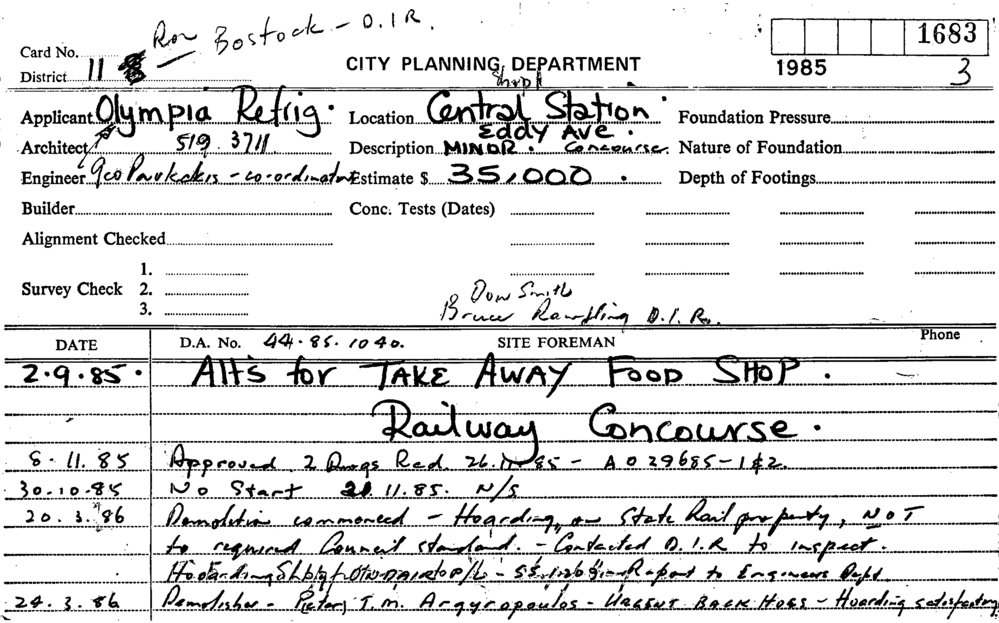 Ron Bostock - D.I.R.
1683
Card No.
District 11
CITY PLANNING DEPARTMENT
1985
3
Shop 11
Applicant Olympia Refrig.
Location Central Station.
Foundation Pressure
Eddy Ave.
Architect 519 3711
Description MINOR. Concourse.
Nature of Foundation
Engineer - co-ordinator
Estimate $ 35,000.
Depth of Footings
Builder
Conc. Tests (Dates)
Alignment Checked
Survey Check
1.
2.
3.
Don Smith
Bruce D.I.R.
DATE
D.A. No. 44.85.1040.
SITE FOREMAN
Phone
2.9.85. Alts for TAKE AWAY FOOD SHOP.
Railway Concourse.
8.11.85 Approved 2 Dwgs Red. 26.11.85 - A029685-1&2.
30.10.85 No Start 21.11.85. N/S
20.3.86 Demolition commenced - Hoarding, on State Rail property, NOT
to required Council standard. - Contacted D.I.R to inspect.
Hoarding P/L - Report to Engineers Dept.
24.3.86 Demolisher - T.M. Argyropoulos - URGENT BACK HOES - Hoarding satisfactory